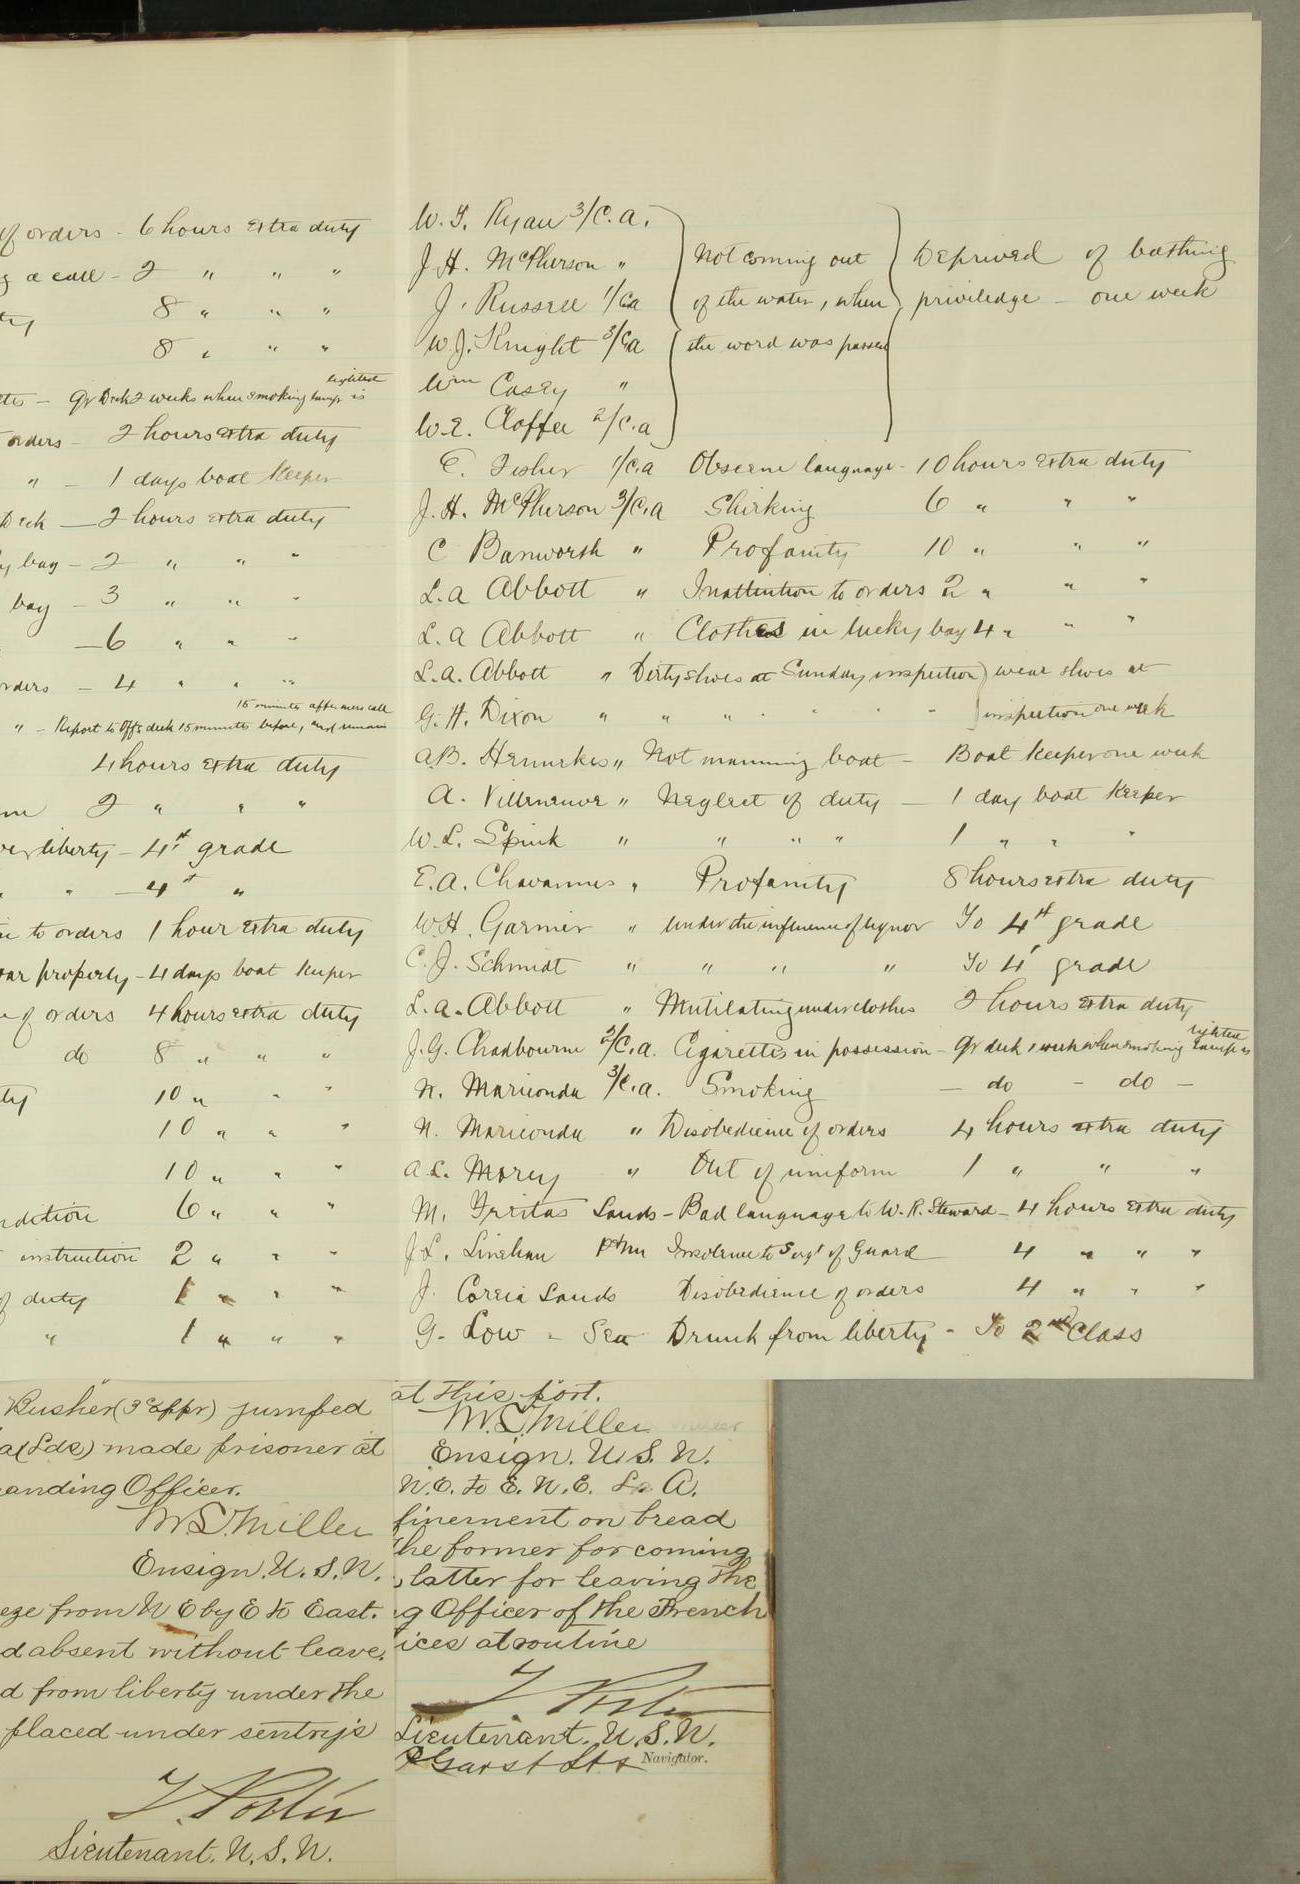 of orders - 6 hours extra duty
g a call - 2 " " "
ty 8 " " "
8 " " "
lighted
ttes - Qr Deck 2 weeks when smoking lamp is
orders - 2 hours extra duty
" - 1 days boat keeper
Deck - 2 hours extra duty
y bag - 2 " " "
bag - 3 " " "
- 6 " " "
orders - 4 " " "
15 minutes after mess call
" - Report to Off's deck 15 minutes before, and remain
4 hours extra duty
me 2 " " "
over liberty - 4th grade
" " - 4th "
to orders 1 hour extra duty
ear properly - 4 days boat keeper
of orders 4 hours extra duty
do 8 " " "
ty 10 " " "
10 " " "
10 " " "
ndition 6 " " "
instruction 2 " " "
of duty 1 " " "
" 1 " " "
W. T. Ryan 3/C. a.
J. H. McPherson " Not coming out Deprived of bathing
J. Russell 1/Ca of the water, when priviledge - one week
W. J. Knight 3/Ca the word was passed
Wm Casey "
W. E. Cloffee 2/C. a
E. Fisher 1/C. a Obscene language - 10 hours extra duty
J. H. McPherson 3/C. a Shirking 6 " " "
C Banworth " Profanity 10 " " "
L. a Abbott " Inattention to orders 2 " " "
L. a Abbott " Clothes in lucky bag 4 " " "
L. a. Abbott " Dirty shoes at Sunday inspection wear shoes at
G. H. Dixon " " " " " " inspection one week
A. B. Hennekes " Not manning boat - Boat keeper one week
A. Villeneuve " Neglect of duty - 1 day boat keeper
W. L. Spink " " " " 1 " " "
E. A. Chavannes " Profanity 8 hours extra duty
W H. Garnier " under the influence of liquor To 4th grade
C. J. Schmidt " " " " To 4' grade
L. a. Abbott " Mutilating underclothes 2 hours extra duty
lighted
J. G. Chadbourne 2/C. a. Cigarettes in possession - Qr deck 1 week when smoking lamp is
N. Mariconda 3/C. a. Smoking - do - do -
N. Mariconda " Disobedience of orders 4 hours extra duty
A. L. Morey " Out of uniform 1 " " "
M. Freitas Lands - Bad language to W. R. Steward - 4 hours extra duty
J. L. Linehan Insolence to Sergt of Guard 4 " " "
J. Coreia Lands Disobedience of orders 4 " " "
G. Low - Sea Drunk from liberty - To 2nd Class
Rusher (3 appr) jumped
a (Lds) made prisoner at
anding Officer.
M. L. Miller
Ensign. U. S. N.
eze from N E by E to East.
d absent without leave.
d from liberty under the
placed under sentry's
T. Porter
Lieutenant. U. S. N.
at this port.
M. L. Miller
Ensign. U. S. N.
N. E. to E. N. E. L. A.
finement on bread
the former for coming
latter for leaving the
g Officer of the French
ices at routine
T. Porter
Lieutenant. U. S. N.
Garst
Navigator.